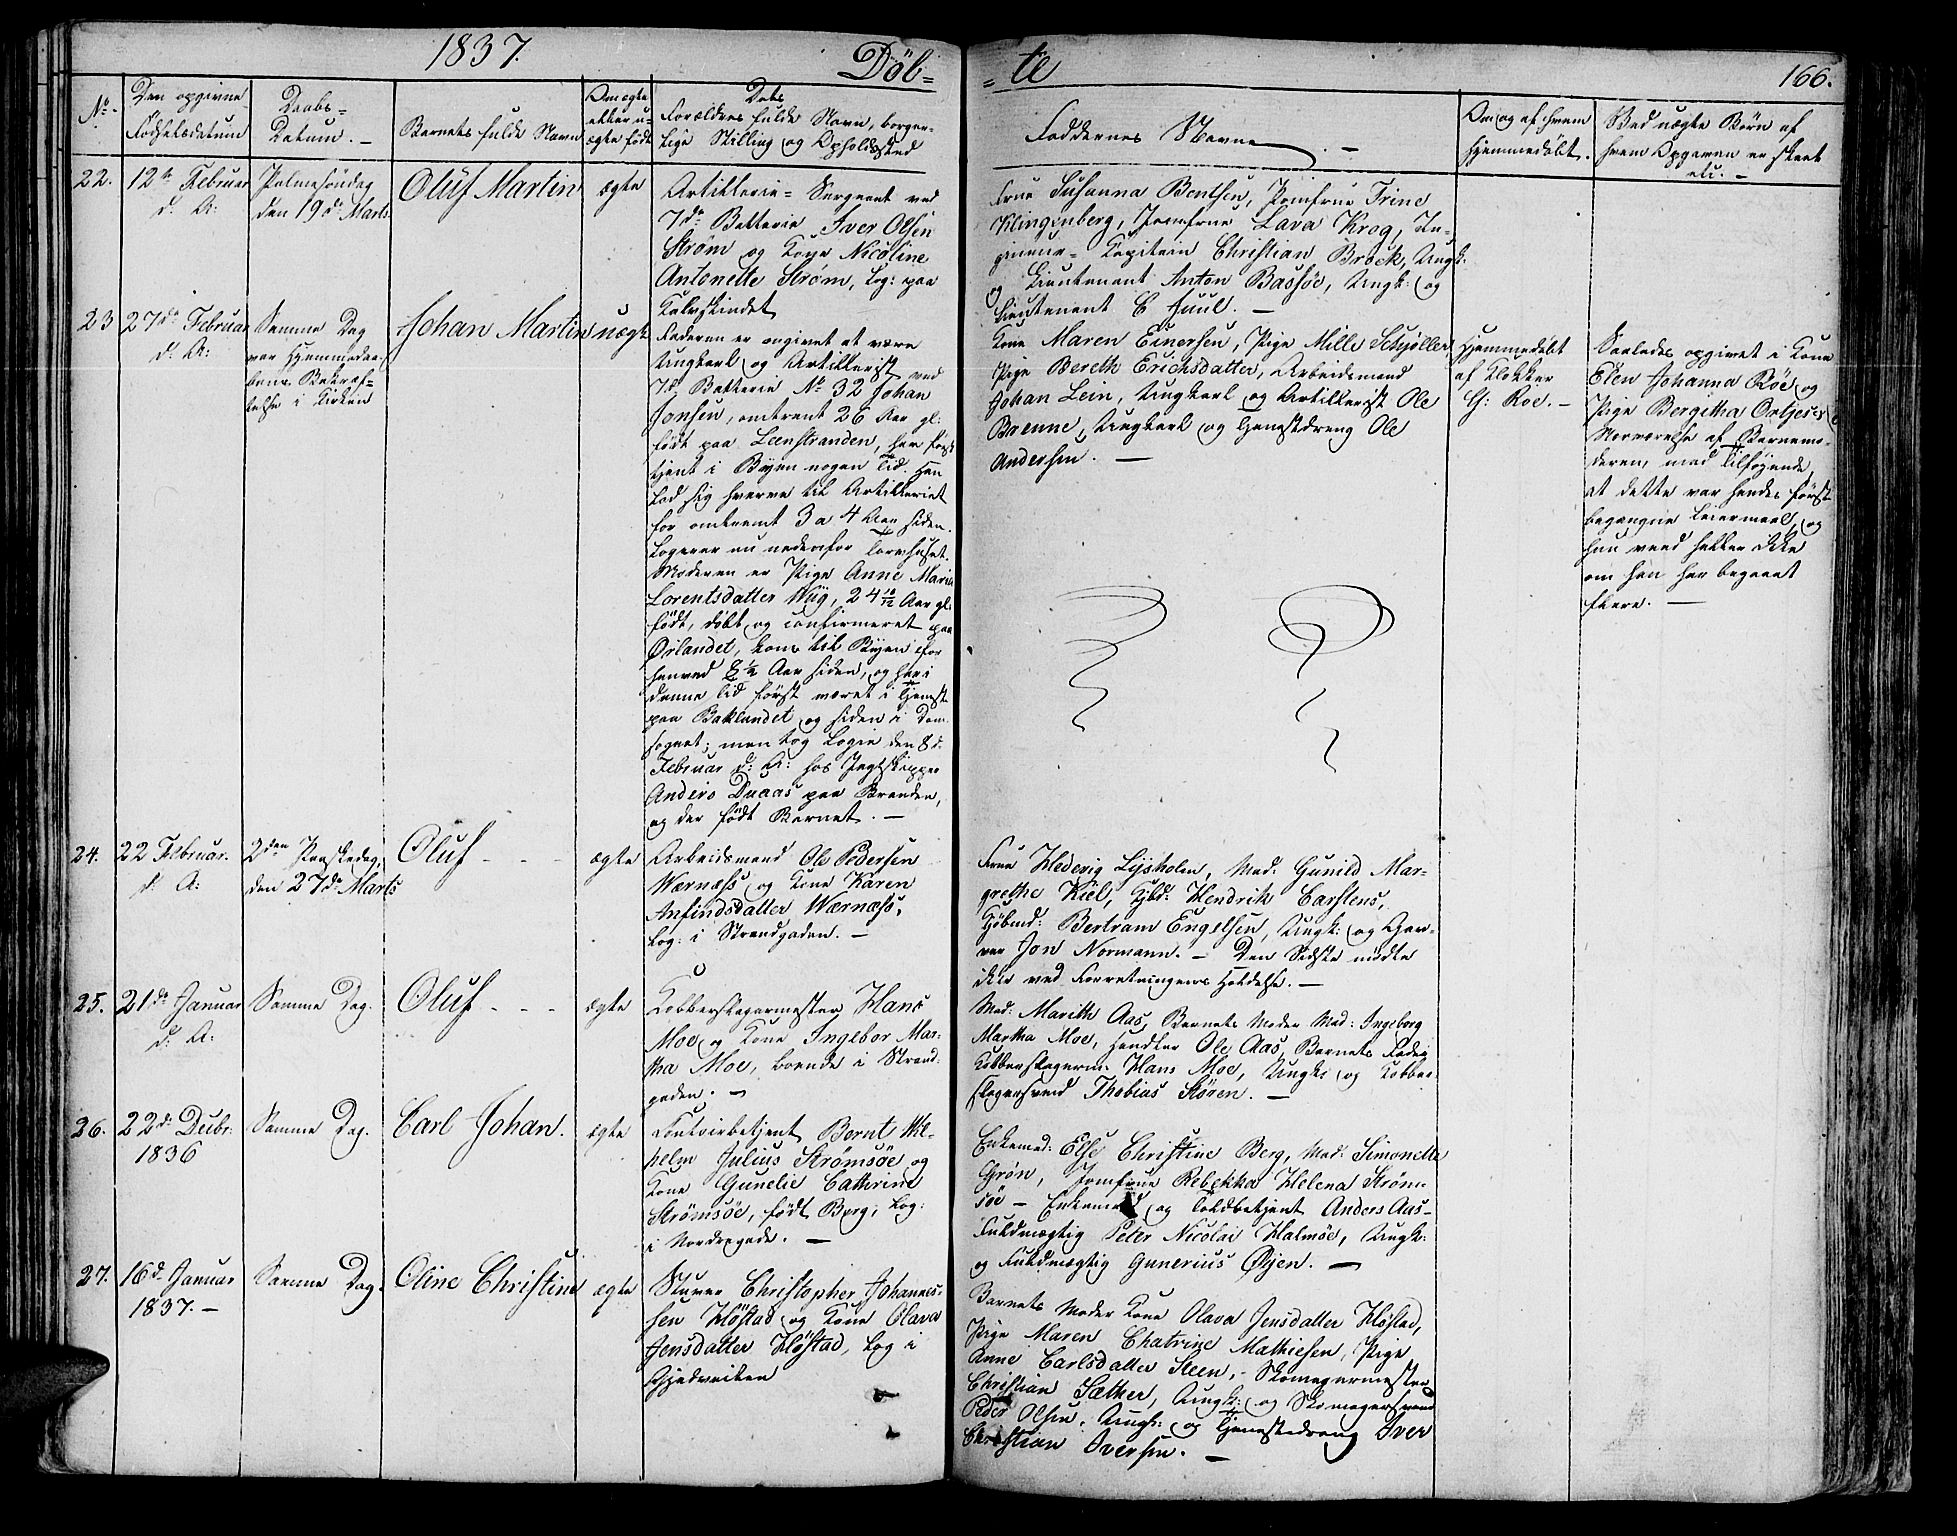 1837. Döb= = te 166.
No. Den opgivne Fødselsdatum
Daabs= Datum. —
Barnets fulde Navn
Om ægte eller u= ægte født
Dets Forældres fulde Navn, borger= lige Stilling og Opholdssted
Faddernes Navne
Om og af hvem Hjemmedöbt.
Ved uægte Börn af hvem Opgaven er skeet etc. —
22. 12te Februar d: A:
Palmesöndag den 19de Marts
Oluf Martin
ægte
Artillerie= Sergeant ved
7de Batterie Iver Olsen
Strøm og Kone Nicoline
Antonette Strøm, Log: paa
Kalvskindet
Frue Susanna Bentsen, Jomfrue Trine
Klingenberg, Jomfrue Lava Krog, In=
genieur= Kapitein Christian Brock, Ungk:
og Lieutenant Anton Bassøe, Ungk: og
Lieutenant C Juul. —
23 27de Februar d: A:
Samme Dag
var Hjemmedaa=
bens Bekræf=
telse i Kirken
Johan Martin
uægte
Faderen er angivet at være
Ungkarl og Artillerist ved
7de Batterie No 32 Johan
Jonsen, omtrent 26 Aar gl:
født paa Leenstranden, har først
tjent i Byen nogen Tid. Han
lod sig hverve til Artilleriet
for omtrent 3 a 4 Aar siden.
Logerer nu nedenfor Corvhuset.
Moderen er Pige Anne Maria
Lorentsdatter Wüg, 24 10/12 Aar gl.
født, döbt og confirmeret paa
Ørlandet, kom til Byen for
henved 8 1/2 Aar siden, og har i
denne Tid først været i Tjeneste
paa Baklandet og siden i Dom
sognet; men tog Logie den 8d.
Februar d: A: hos Jagtskipper
Anders Duaas paa Branden,
og der født Barnet. —
Kone Maren Einersen, Pige Mille Schjøller
Pige Bereth Erichsdatter, Arbeidsmand
Johan Lein, Ungkarl og Artillerist Ole
Brenne, Ungkarl og Tjenestdreng Ole
Andersen. —
Hjemmedöbt
af Klokker
G: Roe. —
Saaledes opgivet i Kone
Elen Johanna Röe og
Pige Bergitha Ortjeses
Nærværelse af Barnemo=
deren, med Tilføiende,
at dette var hendes først
begangne Leiermaal, og
hun veed heller ikke
om han har begaaet
flere. —
24. 22 Februar. d: A:
2den Paaskedag,
den 27de Marts
Oluf - - -
ægte
Arbeidsmand Ole Pedersen
Wærnæss og Kone Karen
Anfindsdatter Wærnæss,
Log: i Strandgaden. —
Frue Hedevig Lysholm, Mad: Gunild Mar=
grethe Kiel, Kjbd: Hendrik Carstens,
Kjöbmd: Bertram Engelsen, Ungk: og Gar=
ver Jon Normann. — Den Sidste mødte
ikke ved Forretningens Holdelse. —
25. 21de Januar d: A:
Samme Dag.
Oluf - - -
ægte
Kobberslagermester Hans
Moe og Kone Ingebor Mar=
tha Moe, boende i Strand=
gaden. —
Mad: Marith Aas, Barnets Moder Mad: Ingeborg
Martha Moe, Handler Ole Aas, Barnets Fader
Kobberslagerm: Hans Moe, Ungk: og Kobber=
slagersvend Thobias Støren. —
26. 22d: Decbr: 1836
Samme Dag.
Carl Johan.
ægte
Contoirbetjent Bernt Wil=
helm Julius Strømsøe og
Kone Gunelie Cathrine
Strømsøe, født Berg, Log:
i Nordregade. —
Enkemad: Else Christine Berg, Mad: Simonette
Grøn, Jomfrue Rebekka Helena Strøm
søe — Enkemand og Toldbetjent Anders Aas=
Fuldmægtig Peter Nicolai Halmøe, Ungk:
og Fuldmægtig Gunerius Øyen. —
27. 16d: Januar 1837. —
Samme Dag.
Oline Christine
ægte
Stuer Christopher Johannes=
sen Høstad og Kone Olava
Jensdatter Høstad, Log i
Gjedveiten
Barnets Moder Kone Olava Jensdatter Høstad,
Pige Maren Chatrine Mathiesen, Pige
Anne Carlsdatter Steen, Skomagermester
Christian Sæther, Ungk: og Skomagersvend
Peder Olsen, Ungk: og Tjenestedreng Iver
Christian Iversen. —